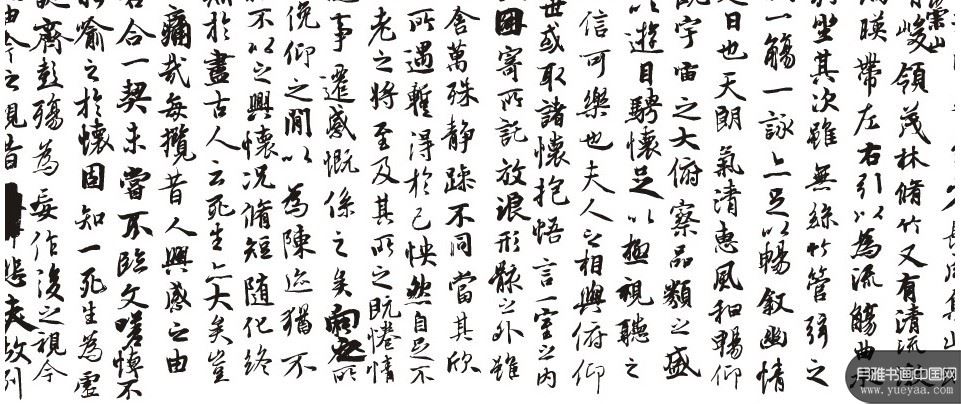 長咸集此
崇山
有峻領茂林脩竹又有清流激
暎帶左右引以為流觴曲水
列坐其次雖無絲竹管弦之
一觴一詠亦足以暢敘幽情
是日也天朗氣清惠風和暢仰
觀宇宙之大俯察品類之盛
以遊目騁懷足以極視聽之
信可樂也夫人之相與俯仰
世或取諸懷抱悟言一室之內
因寄所託放浪形骸之外雖
舍萬殊靜躁不同當其欣
所遇蹔得於己怏然自足不
老之將至及其所之既惓情
事遷感慨係之矣向之所
俛仰之閒以為陳迹猶不
不以之興懷況脩短隨化終
於盡古人云死生亦大矣豈
痛哉每攬昔人興感之由
若合一契未嘗不臨文嗟悼不
喻之於懷固知一死生為虛
誕齊彭殤為妄作後之視今
由今之視昔悲夫故列
月雅书画中国网
www.yueyaa.com